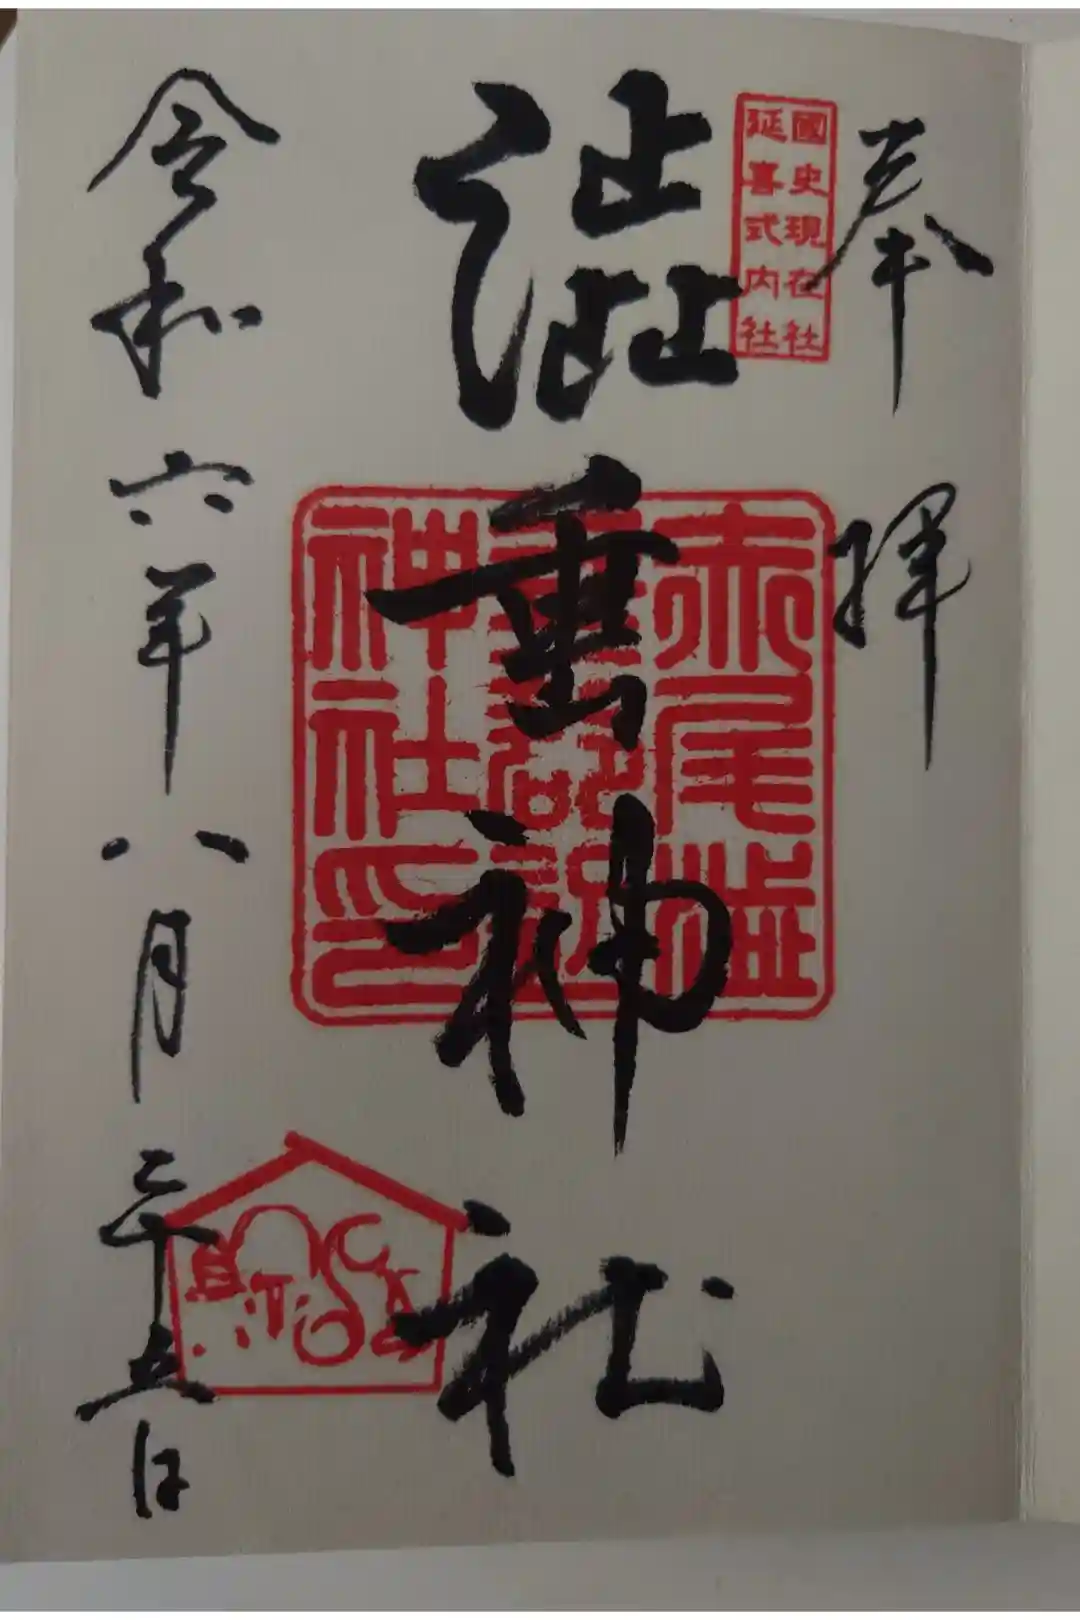 奉拝
國史現在社
延喜式内社
澁垂神社
赤尾澁
垂郡辺
神社印
令和六年八月二十五日